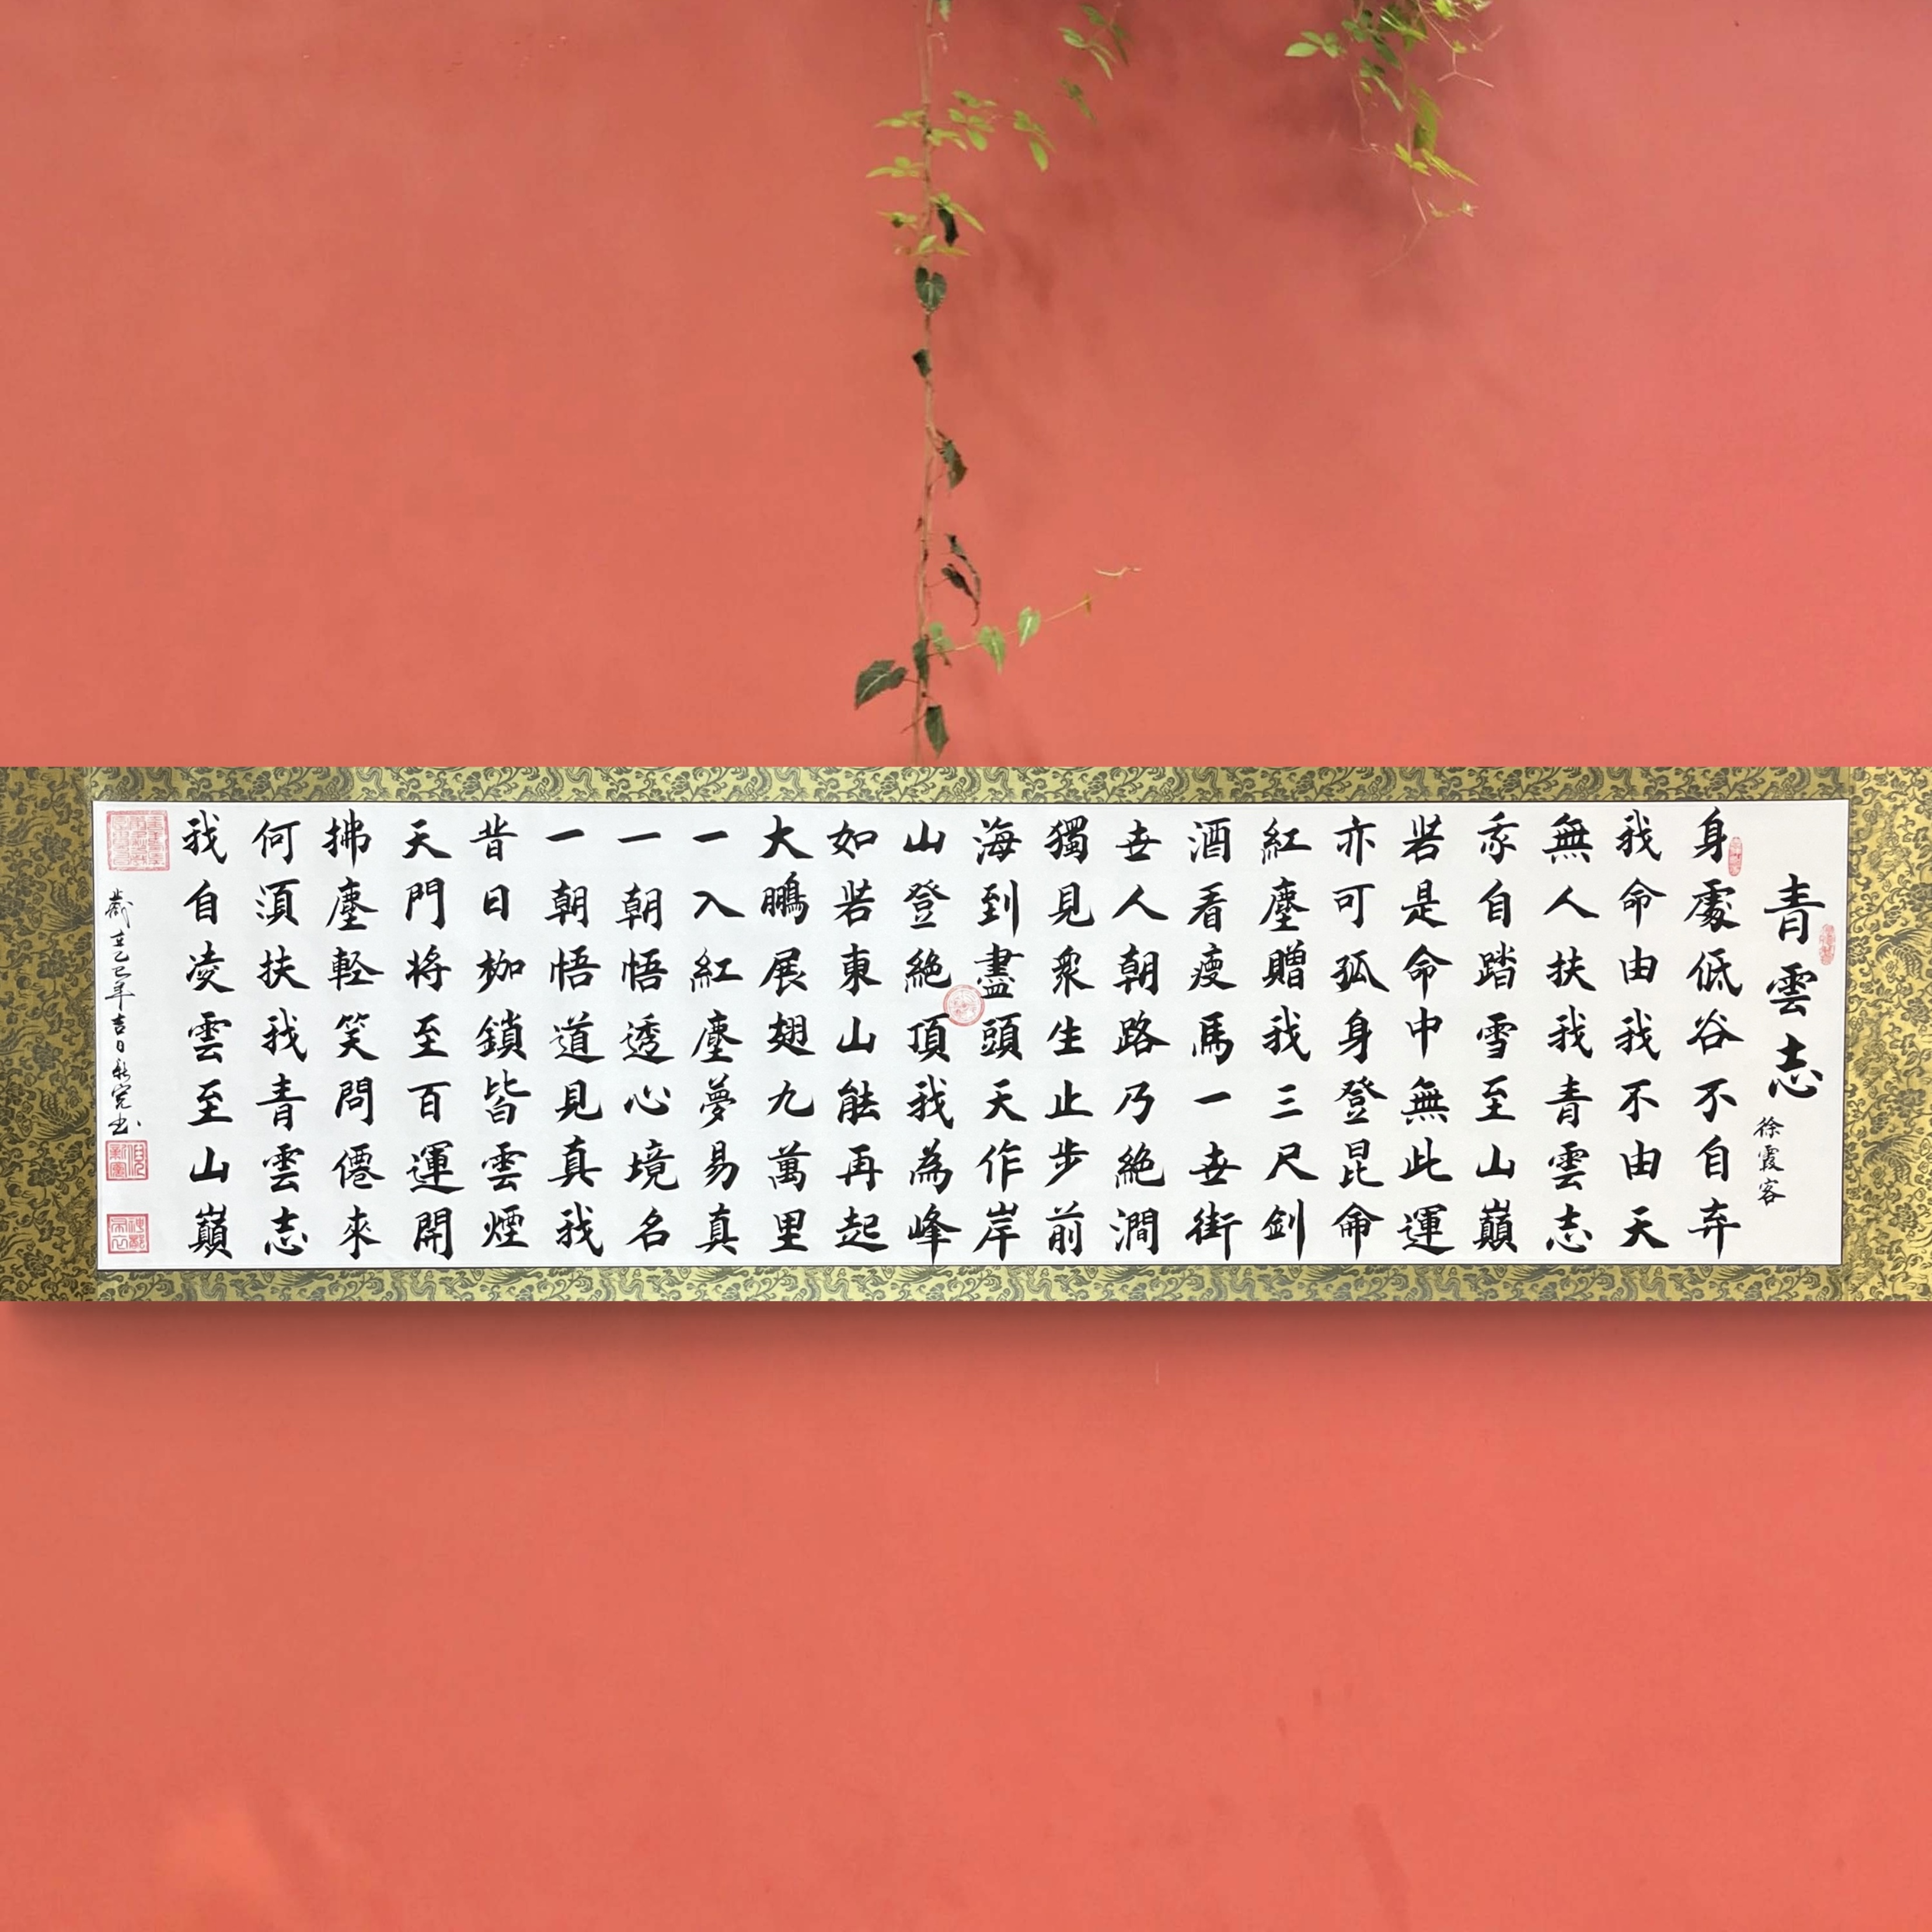 青雲志
徐霞客
身處低谷不自弃
我命由我不由天
無人扶我青雲志
我自踏雪至山巔
若是命中無此運
亦可孤身登昆侖
紅塵贈我三尺剑
酒看瘦馬一世街
世人朝路乃絕澗
獨見衆生止步前
海到盡頭天作岸
山登絕頂我為峰
如若東山能再起
大鵬展翅九萬里
一入紅塵夢易真
一朝悟透心境名
一朝悟道見真我
昔日枷鎖皆雲煙
天門将至百運開
拂塵輕笑問僊來
何須扶我青雲志
我自凌雲至山巔
歲在乙巳年吉日新寬书